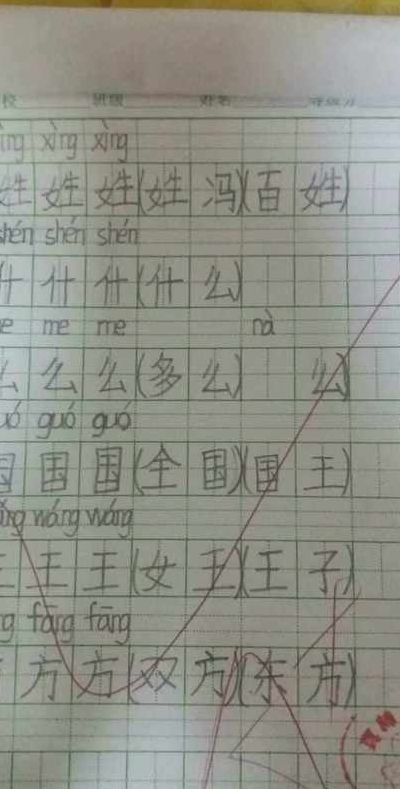 校 班级 姓名
xìng xìng
姓 姓 姓(姓 冯)(百 姓)
shén shén shén
什 什 什(什 么)
me me nà
么 么 么(多 么)( 么)
guó guó
国 国 国(全 国)(国 王)
wáng wáng
王 王 王(女 王)(王 子)
fāng fāng
方 方 方(双 方)(东 方)